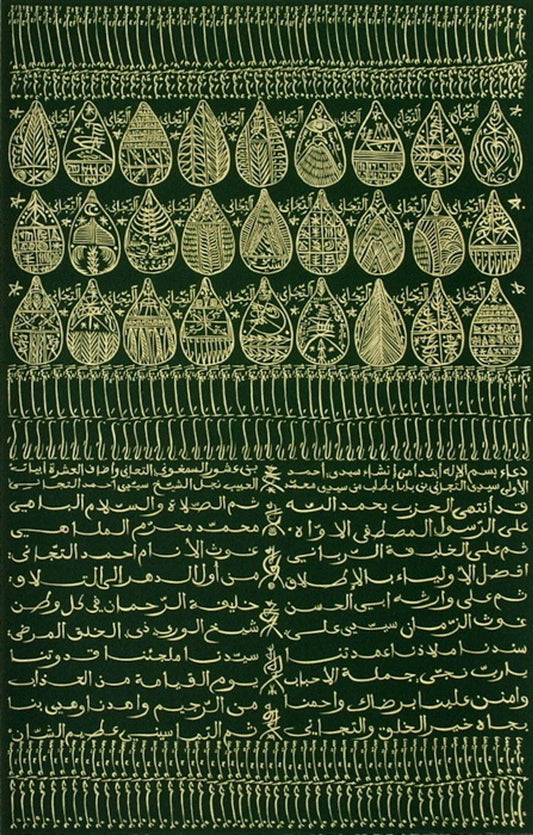 التجاني التجاني التجاني التجاني التجاني التجاني التجاني التجاني
التجاني التجاني التجاني التجاني التجاني التجاني التجاني التجاني
التجاني التجاني التجاني التجاني التجاني التجاني التجاني التجاني
دعاء بسم الإله ابتدا من إنشاء سيدي احمد بن عشور السمغوني التجاني واضاف العشرة أبيات
الأولى سيدي التجاني بن بابا من سيدي محمد الحبيب نجل الشيخ سيدي أحمد التجاني
قد أنتهى الحزب بحمد الله ثم الصلاة والسلام الباهي
على الرسول المصطفى الاواه محمد محرم الملاهي
ثم على الخليفة الرباني غوث الأنام احمد التجاني
افضل الأولياء بالإطلاق من أول الدهر الى التلاق
ثم على وارثه ابي الحسن خليفة الرحمان في كل وطن
غوث الزمان سيدي علي شيخ الورى ذي الخلق المرضي
سندنا ملاذنا عمدتنا سيدنا ملجئنا قدوتنا
يارب نجي جملة الأحباب يوم القيامة من العذاب
وامنن علينا برضاك واحمنا من الرجيم واهدنا بنا
بجاه خير الخلق والتجاني ثم التماسيني عظيم الشان